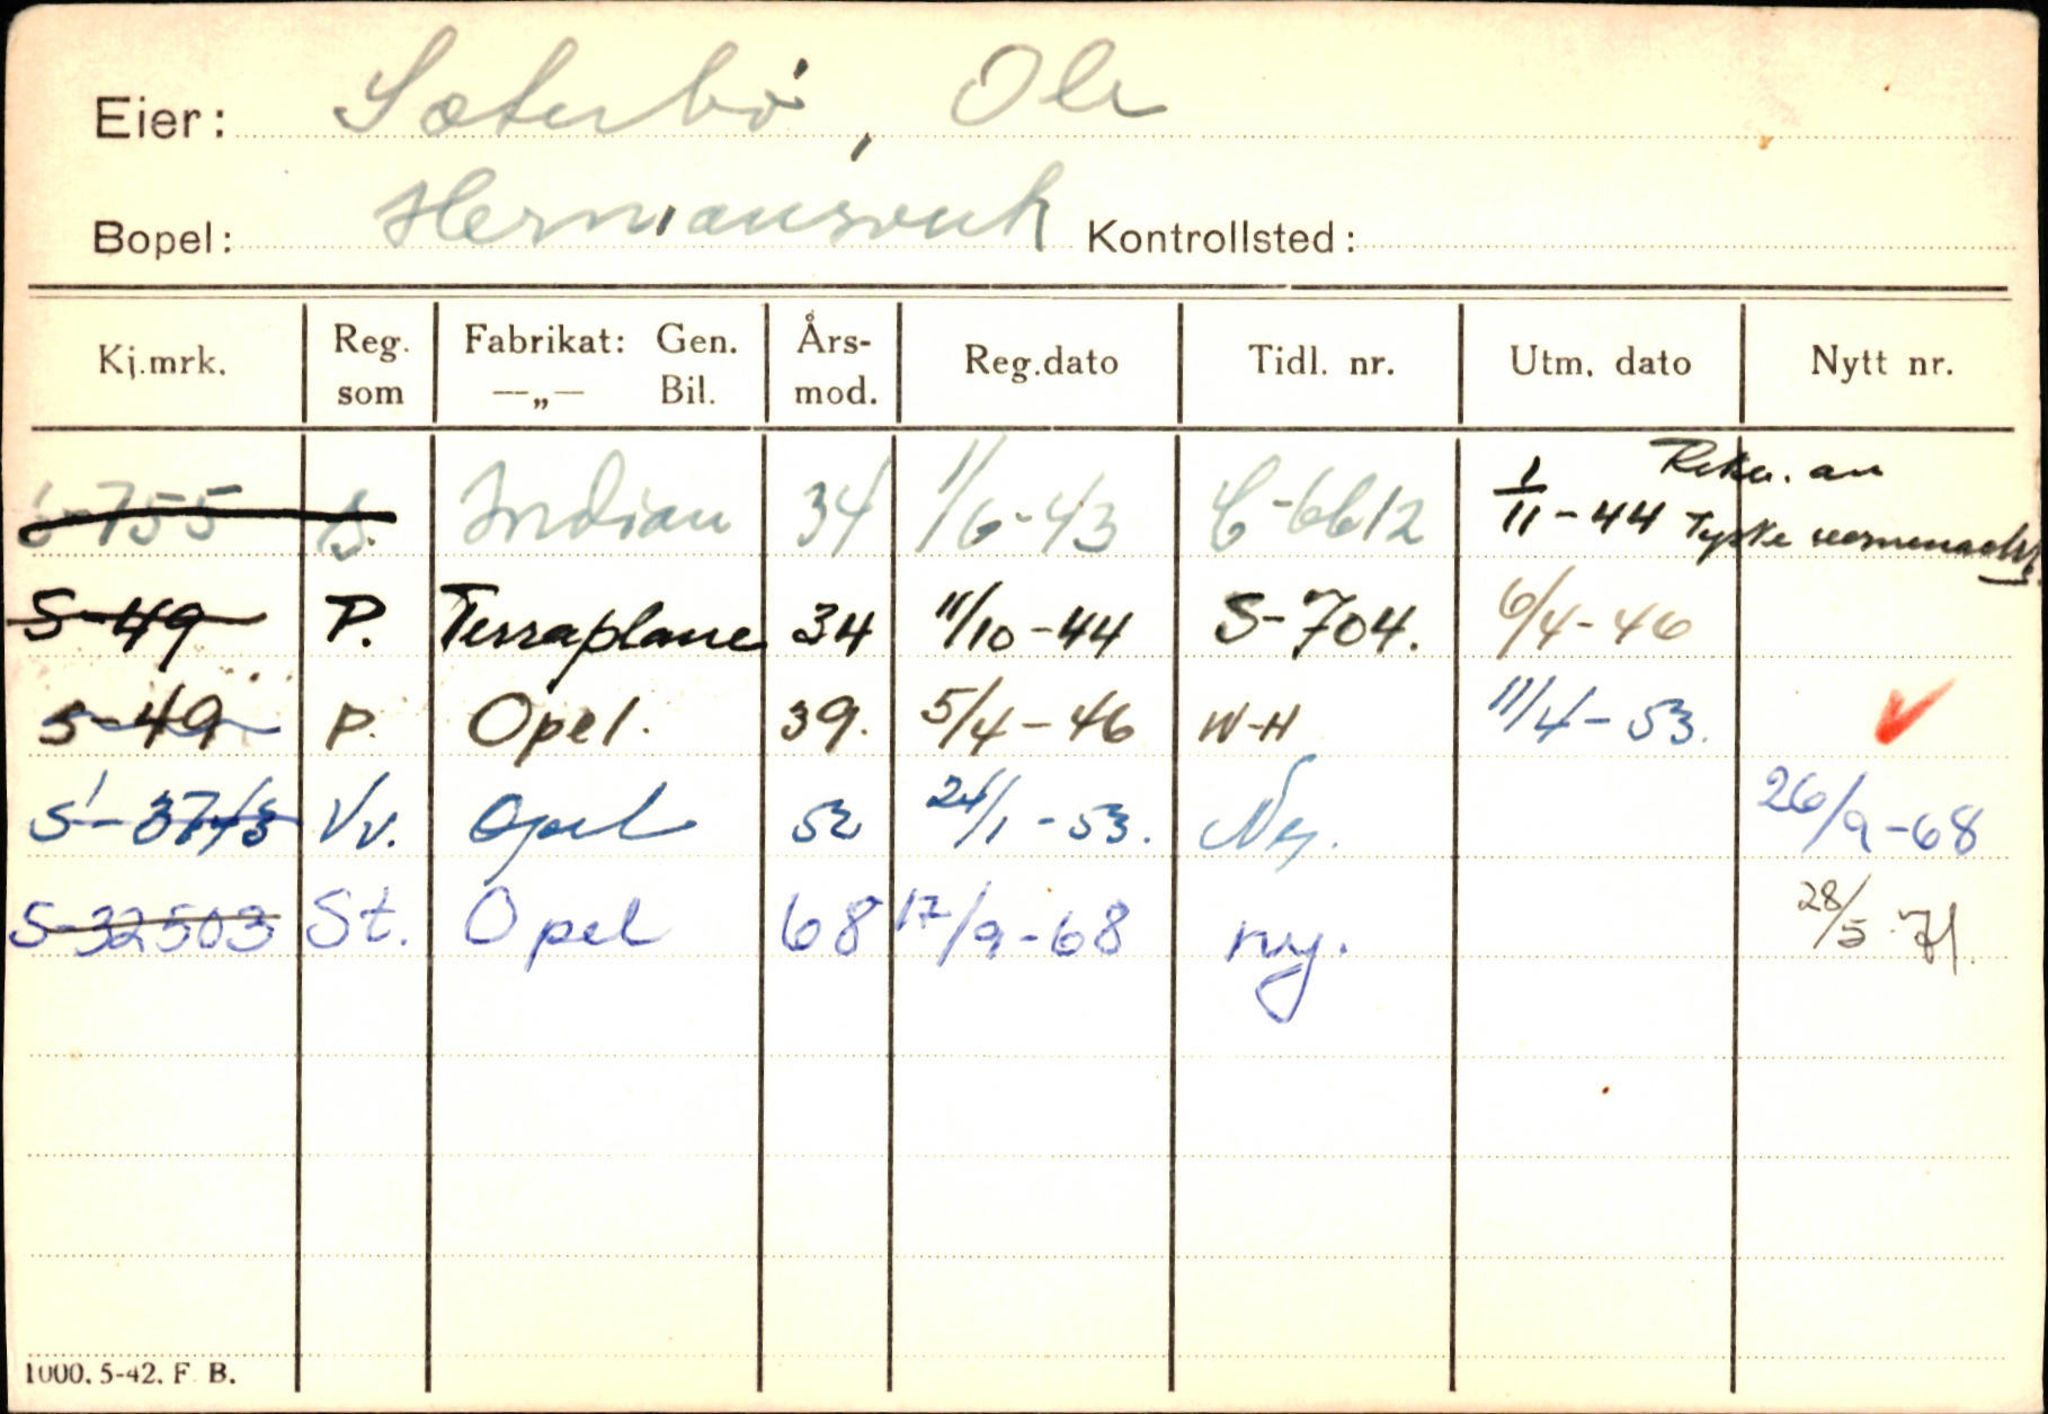 Eier: Sæterbö, Ole
Bopel: Hermansverk Kontrollsted:
Kj.mrk. Reg. som Fabrikat: Gen. —„— Bil. Års- mod. Reg.dato Tidl. nr. Utm. dato Nytt nr.
S-755 S. Indian 34 1/6-43 C-6612 1/11-44 Rekv. av Tyske vermenacht
S-49 P. Terraplane 34 11/10-44 S-704. 6/4-46
S-49 P. Opel. 39. 5/4-46 W-H 11/4-53.
S-3743 Vv. Opel 52 24/1-53. Ny. 26/9-68
S-32503 St. Opel 68 17/9-68 ny. 28/5-71.
1000. 5-42. F. B.